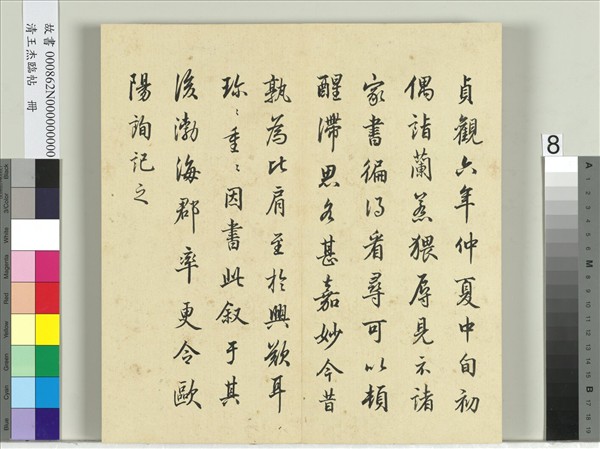 貞觀六年仲夏中旬初
偶詣蘭若猥辱見示諸
家書徧得看尋可以頓
醒滯思尤甚嘉妙今昔
孰為比肩至於興歎耳
珎〻重〻因書此叙于其
後渤海郡率更令歐
陽詢記之
故書 000862N000000000
清王杰臨帖 冊
8
A 1 2 3 4 5 6 M 8 9 10 11 12 13 14 15 B 17 18 19
Black
3/Color
White
Magenta
Red
Yellow
Green
Cyan
Blue